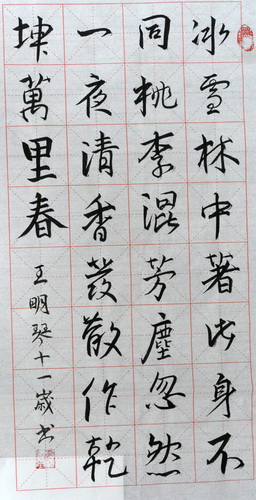 冰雪林中著此身不
同桃李混芳塵忽然
一夜清香發散作乾
坤萬里春
王明琴十一歲书